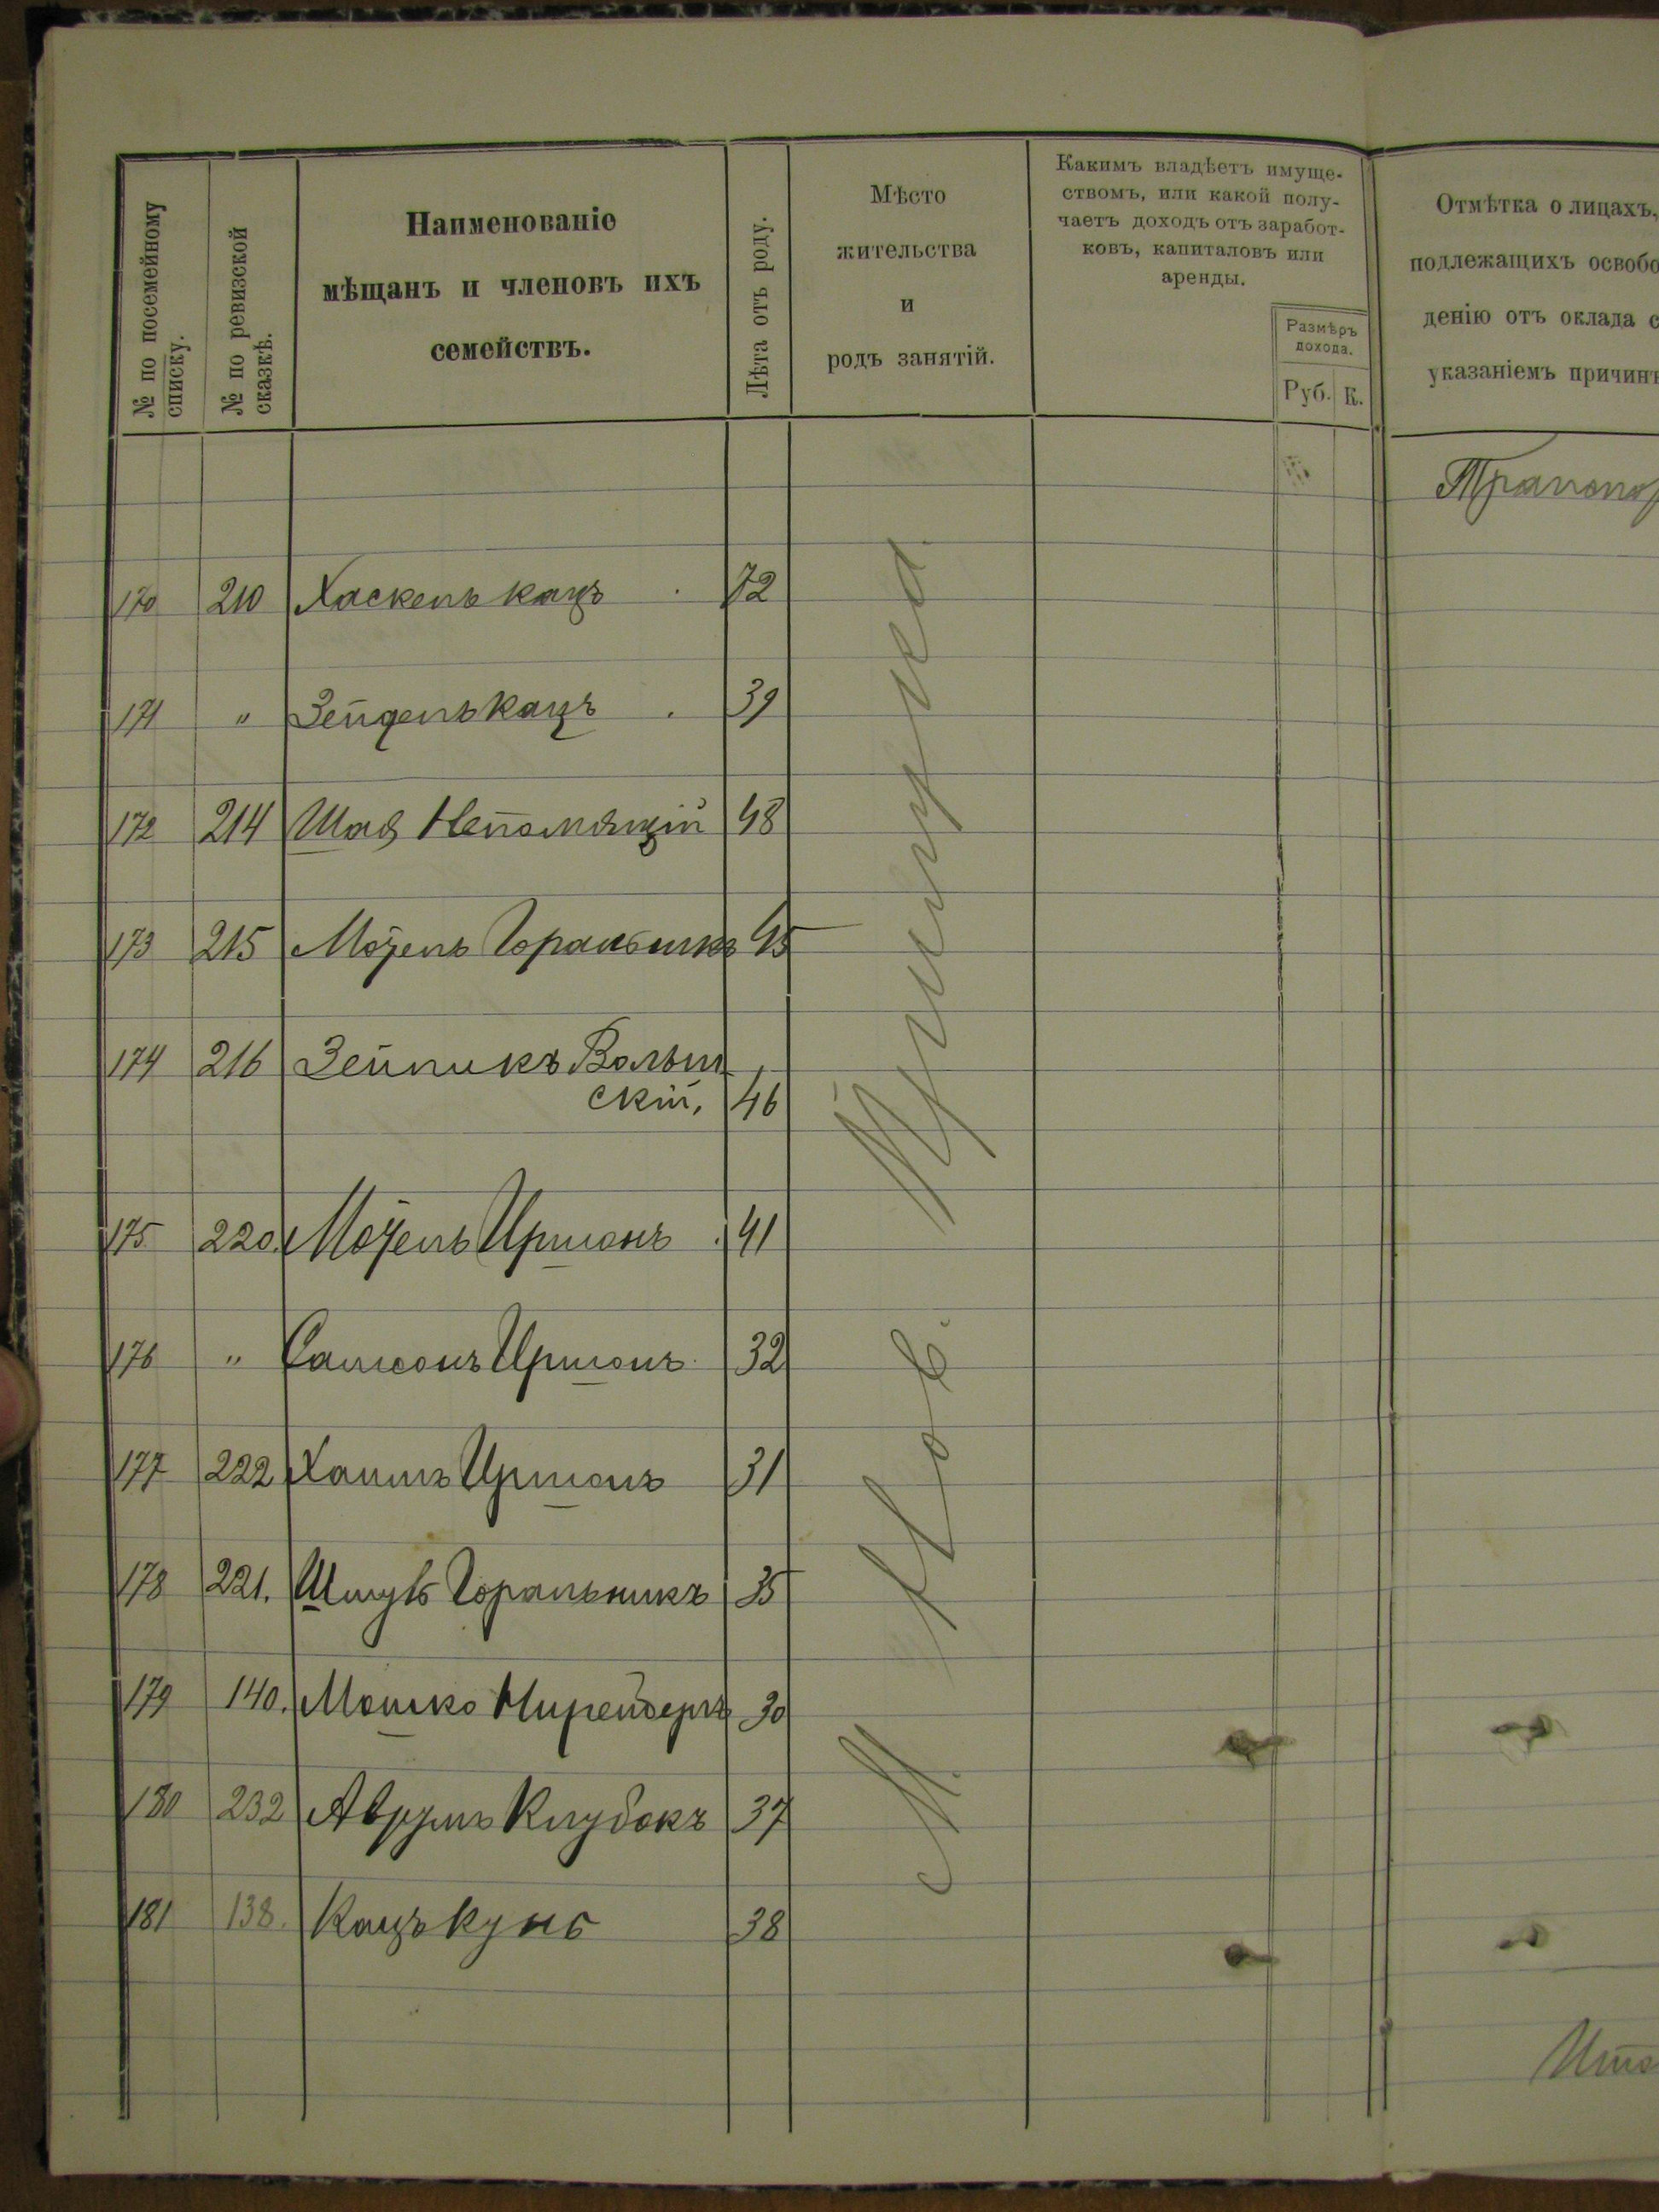 № по посемейному
списку.
№ по ревизской
сказкѣ.
Наименованіе
мѣщанъ и членовъ ихъ
семействъ.
Лѣта отъ роду.
Мѣсто
жительства
и
родъ занятій.
Какимъ владѣетъ имуще-
ствомъ, или какой полу-
чаетъ доходъ отъ заработ-
ковъ, капиталовъ или
аренды.
Размѣръ
дохода.
Руб. К.
Отмѣтка о лицахъ,
подлежащихъ освобо
денію отъ оклада с
указаніемъ причинъ
Транспор
170 210 Хаскель Кацъ . 72
171 " Зейдель Кацъ . 39
172 214 Шая Непомящій 48
173 215 Мойель Горальникъ 45
174 216 Зейликъ Волын
скій, 46
175 220. Мойель Ирманъ . 41
176 " Самсонъ Ирманъ. 32
177 222 Хаимъ Ирманъ 31
178 221. Шмуль Горальникъ 35
179 140. Мошко 30
180 232 Аврумъ Клубокъ 37
181 138. Кацъ Кунь 38
М.
Ито